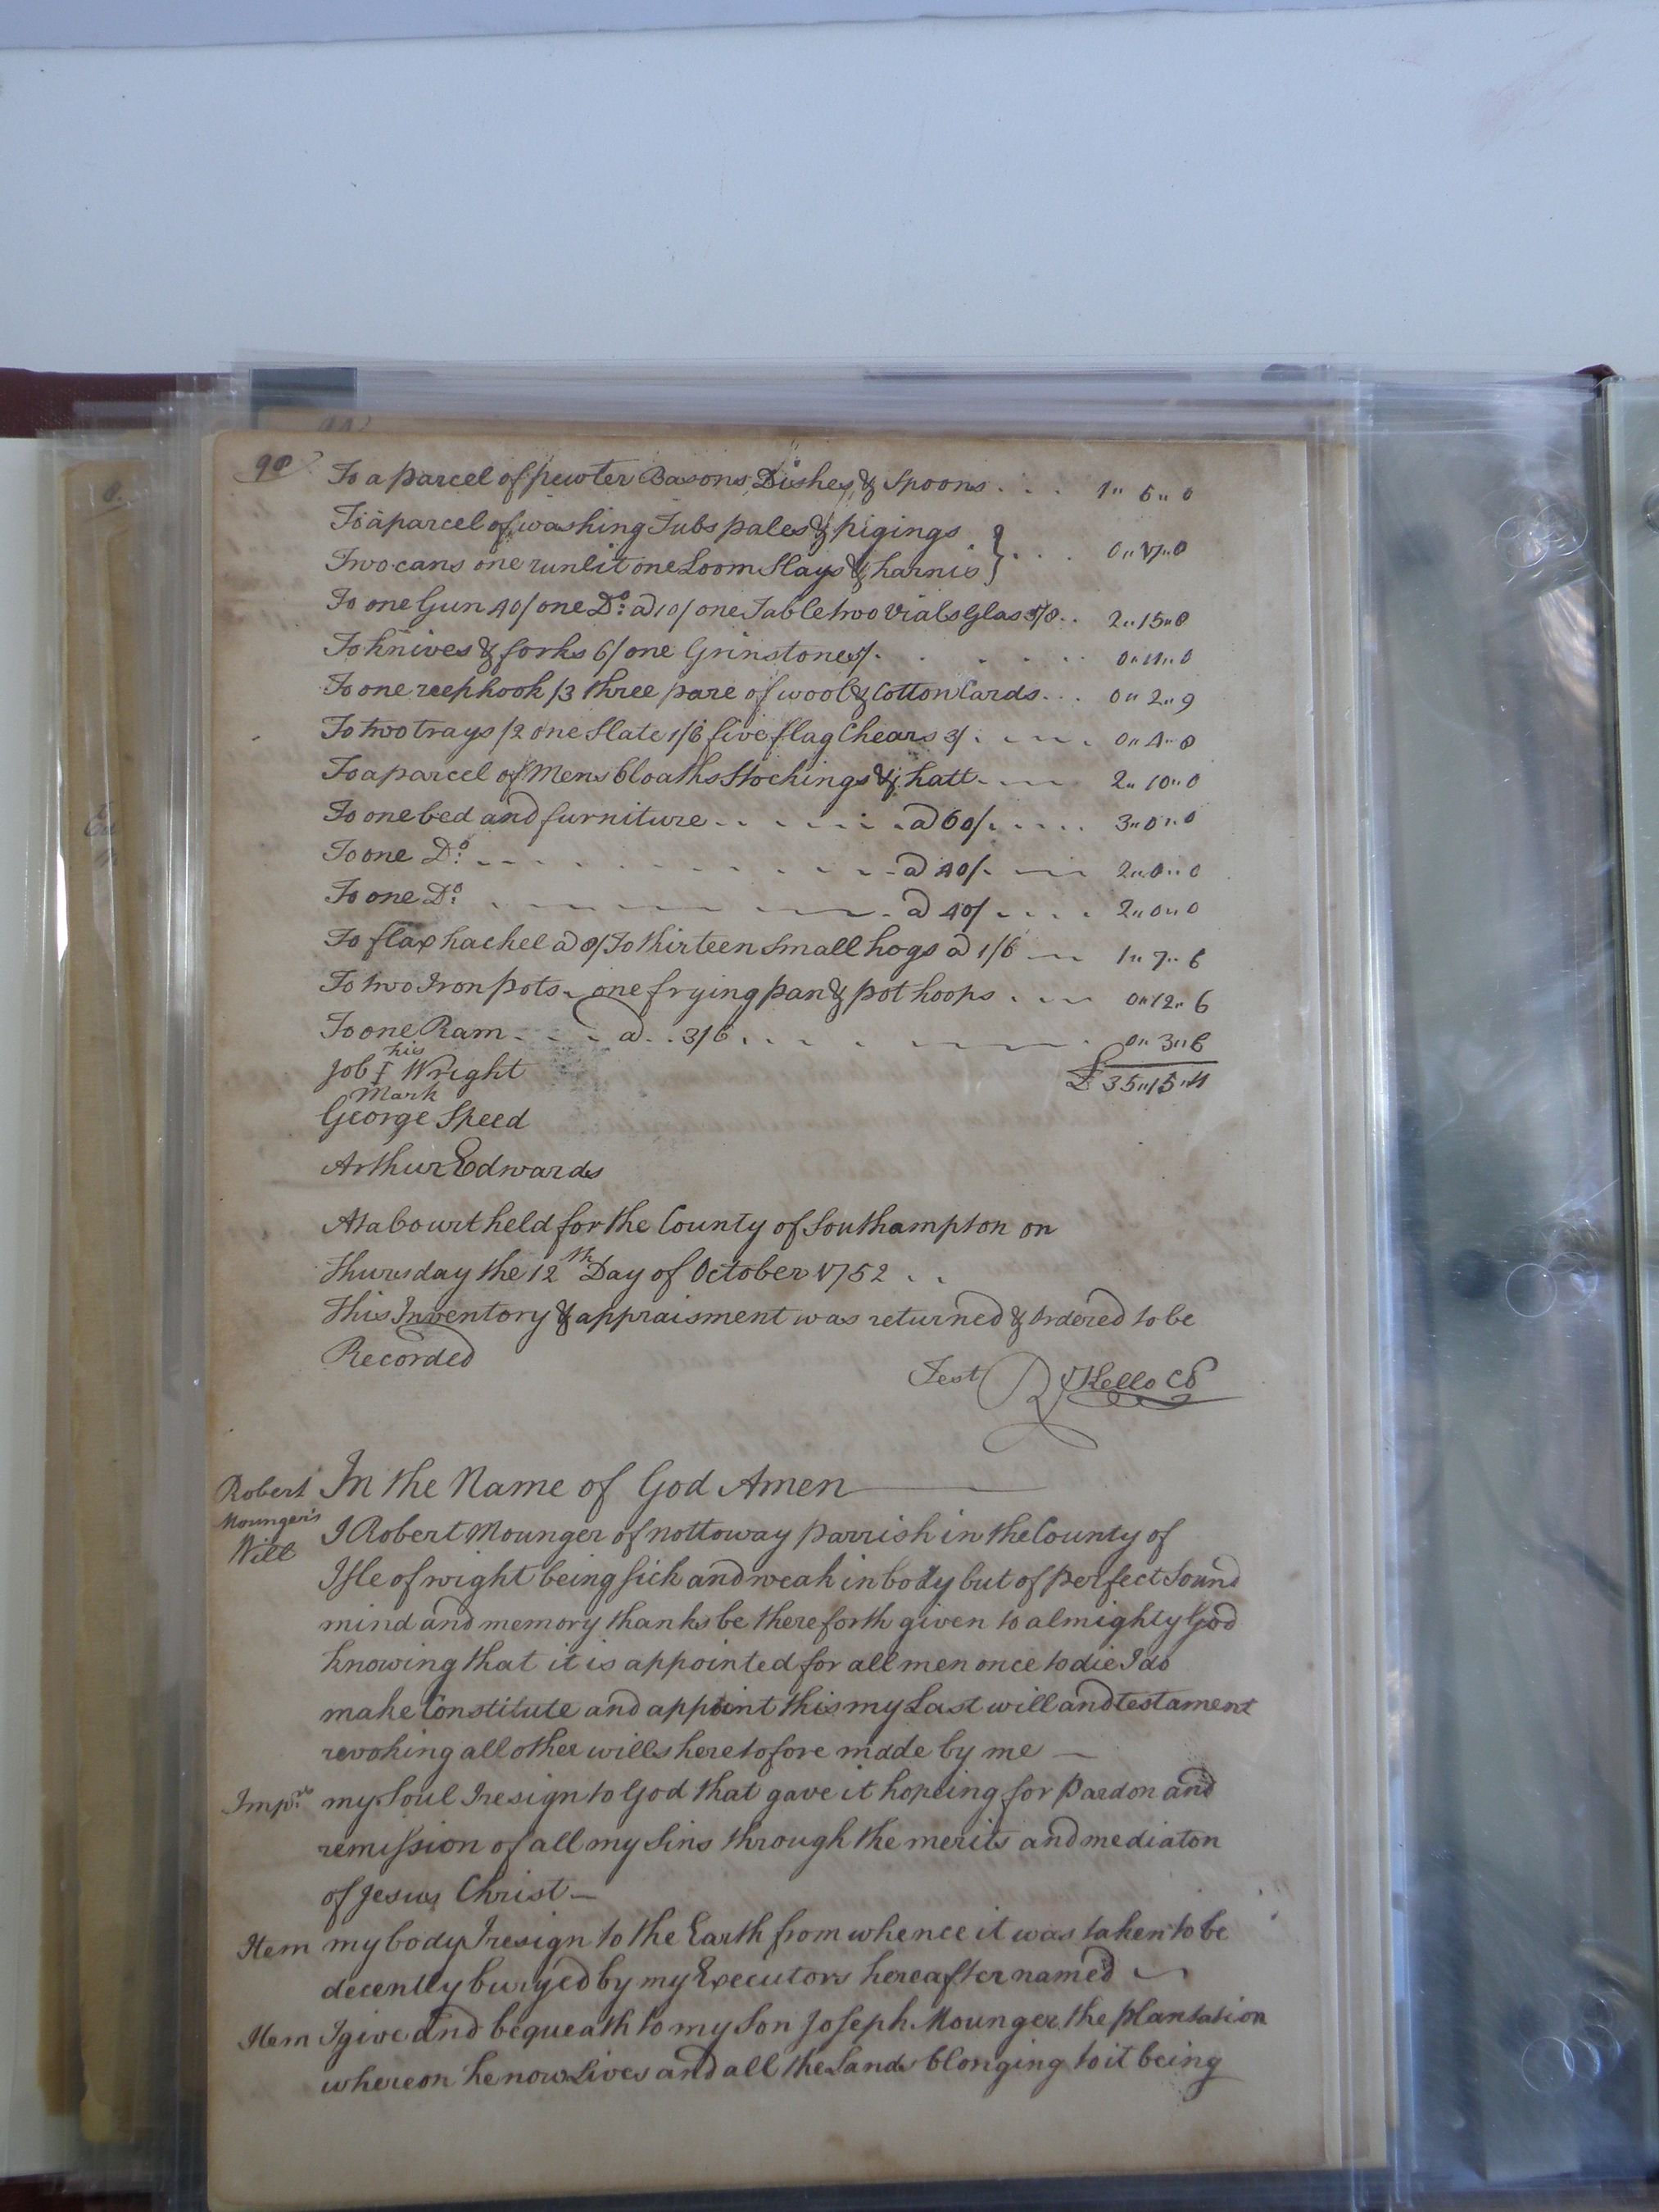 98
To a parcel of pewter Basons Dishes & Spoons . . . 1 " 6 " 0
To a parcel of washing Tubs pales & pigings
Two cans one runlit one Loom Slays & harnis } . . . 0 " 17 " 0
To one Gun 40/ one Do: a 10/ one Table two vials Glas 5/8 . . 2 " 15 " 8
To knives & forks 6/ one Grinstone 5/ . . . . . 0 " 11 " 0
To one reephook /3 three pare of wool & Cotton Cards . . . 0 " 2 " 9
To two trays /2 one Slate 1/6 five flag Chears 3/ . . . . 0 " 4 " 8
To a parcel of Mens Cloaths Stockings & hatt . . . 2 " 10 " 0
To one bed and furniture . . . . . . a 60/ . . . . 3 " 0 " 0
To one Do: . . . . . . a 40/ . . . 2 " 0 " 0
To one Do: . . . . . . a 40/ . . . . 2 " 0 " 0
To flax hackel a 8/ To thirteen Small hogs a 1/6 . . . 1 " 7 " 6
To two Iron pots . one frying pan & pot hooks . . . 0 " 12 " 6
To one Ram . . . a . . 3/6 . . . . . . 0 " 3 " 6
his
Job I Wright £ 35 " 15 " 4
Mark
George Speed
Arthur Edwards
At a Court held for the County of Southampton on
Thursday the 12th Day of October 1752 . .
This Inventory & appraisment was returned & Ordered to be
Recorded
Test R Kello C
Robert In the Name of God Amen
Mounger's
Will
I Robert Mounger of nottoway parrish in the County of
Isle of wight being sick and weak in body but of perfect Sound
mind and memory thanks be thereforth given to almighty God
knowing that it is appointed for all men once to die I do
make Constitute and appoint this my Last will and testament
revoking all other wills heretofore made by me
Imprs my Soul I resign to God that gave it hopeing for pardon and
remission of all my Sins through the merits and mediaton
of Jesus Christ
Item my body I resign to the Earth from whence it was taken to be
decently buryed by my Executors hereafter named
Item I give and bequeath to my Son Joseph Mounger the plantation
whereon he now Lives and all the Lands blonging to it being